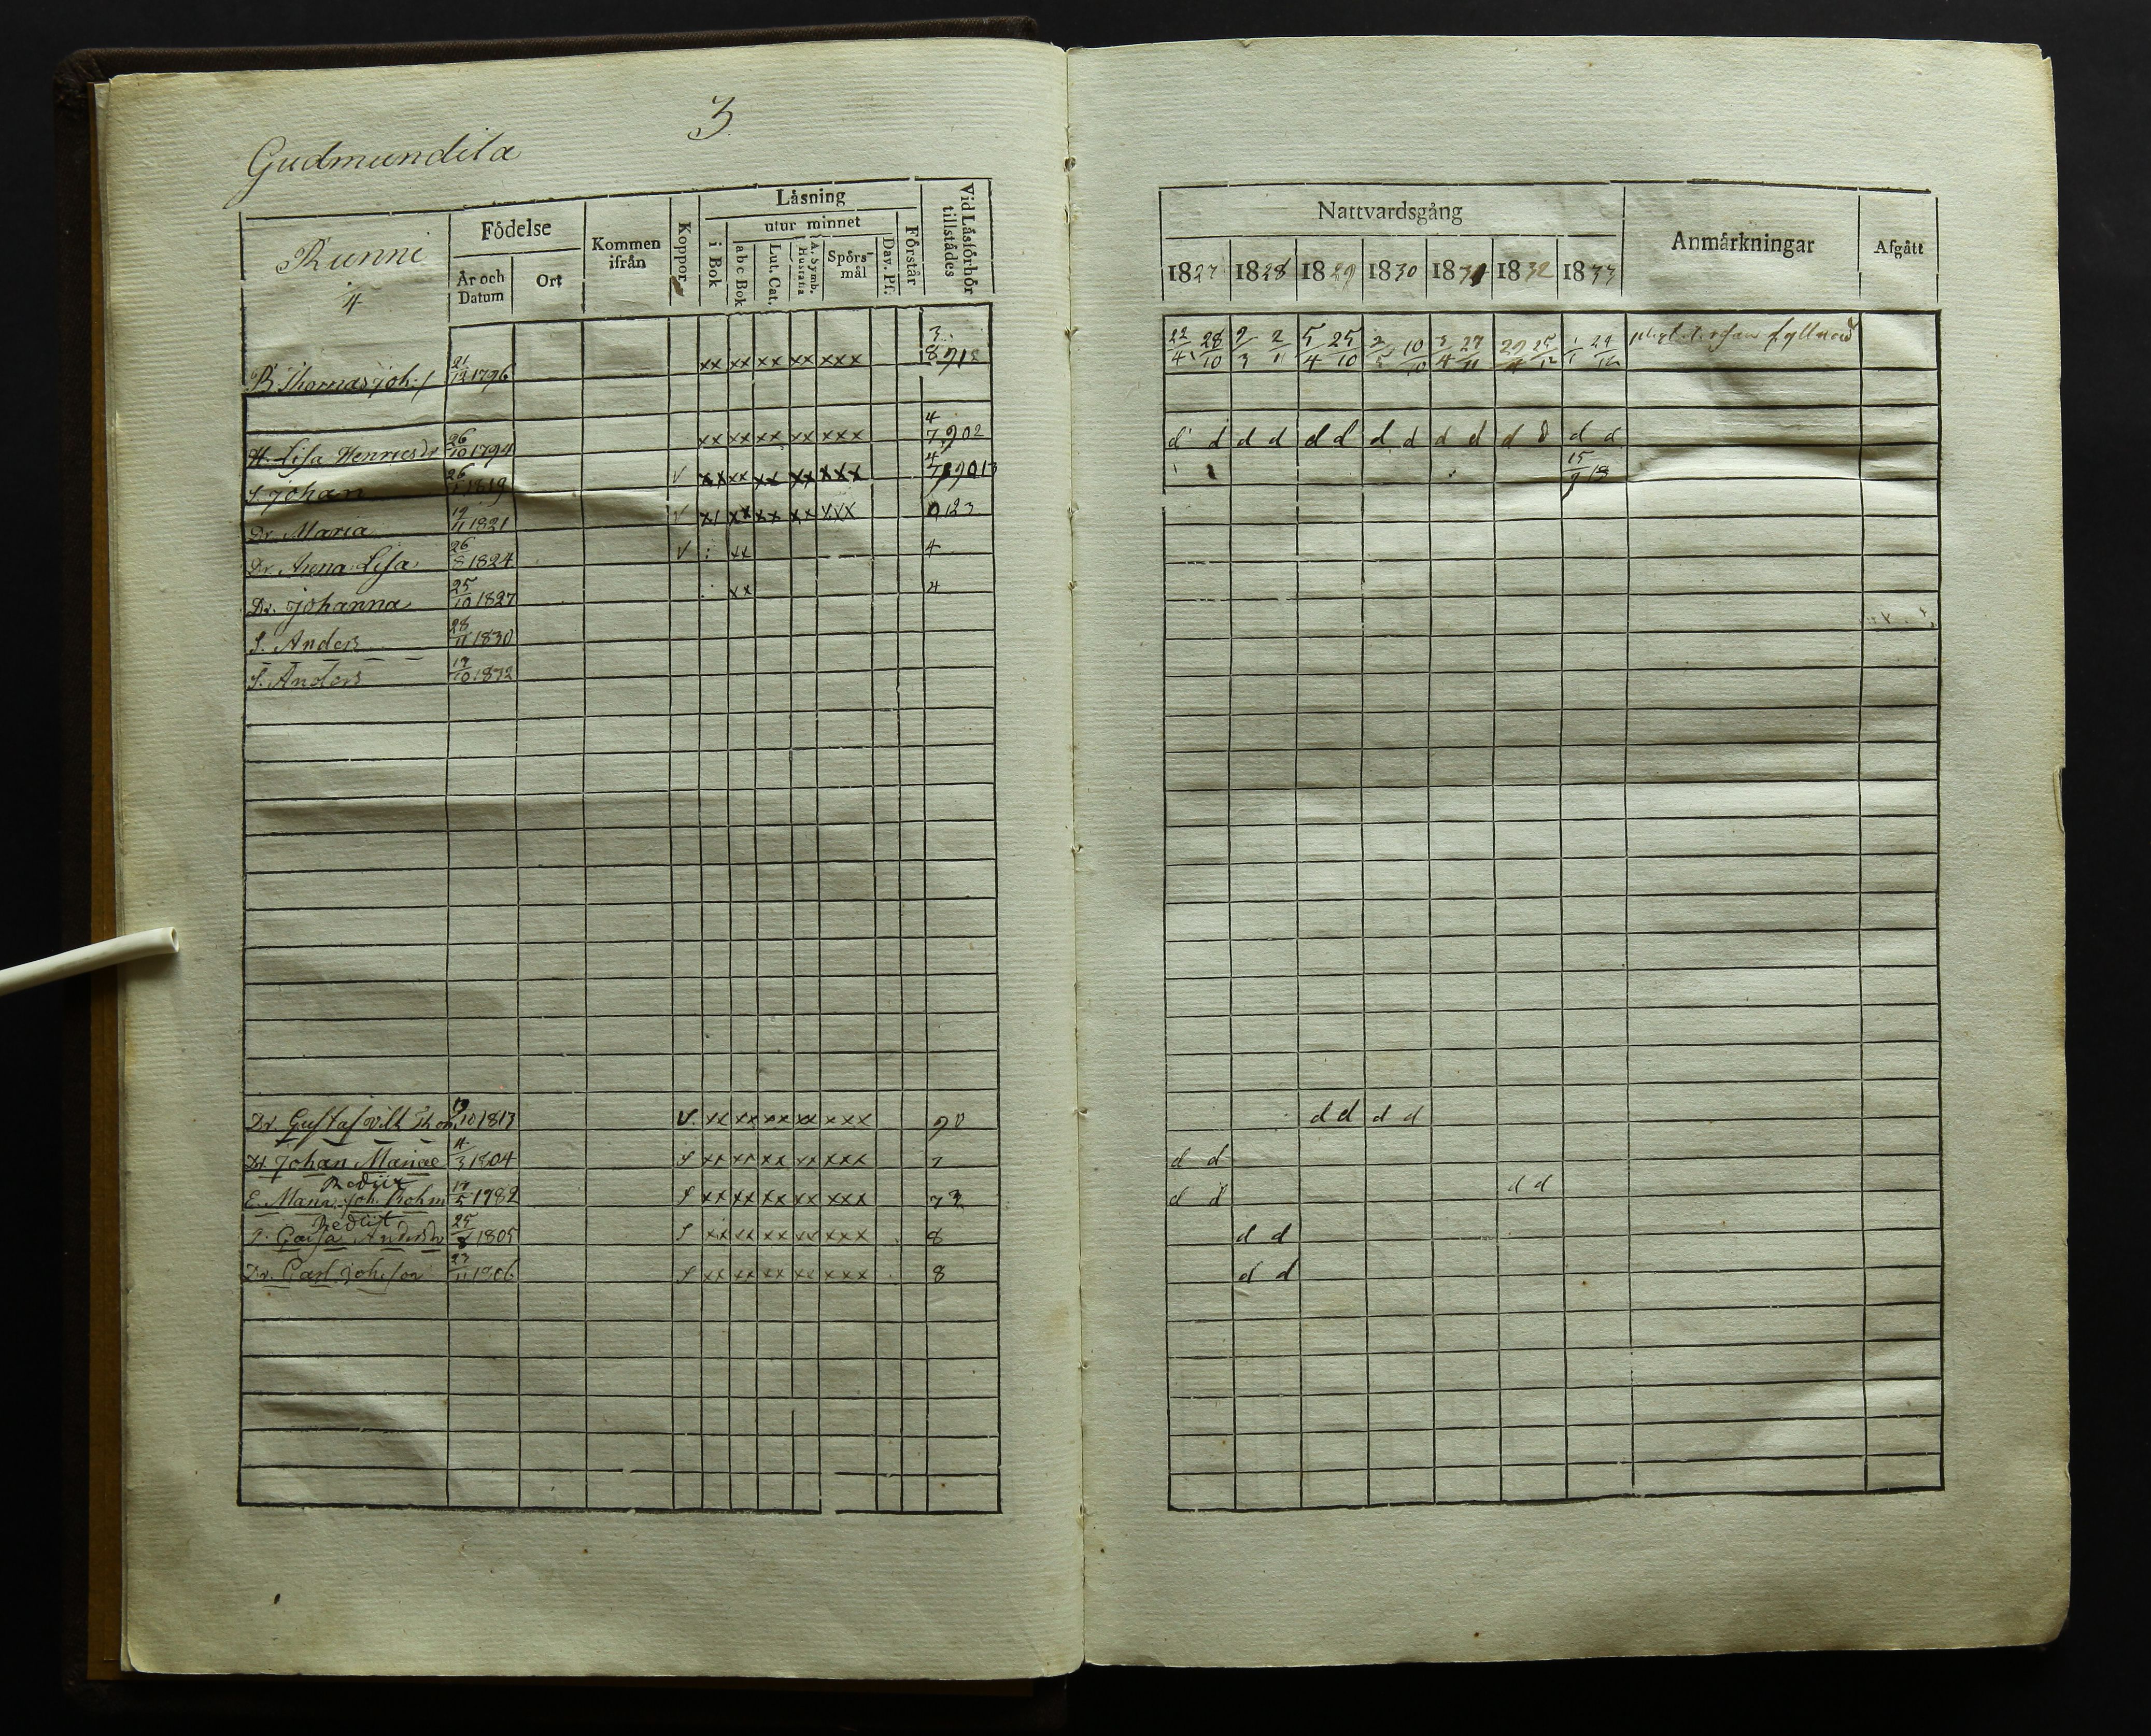 3
Gudmundila
Runni
4
Födelse
År och Datum
Ort
Kommen ifrån
Koppor
Läsning
i Bok
utur minnet
abc Bok
Lut. Cat.
A. Symb. Hustafla
Spörs-mål
Dav. Pf.
Förstår
Vid Läsförhör tillstädes
Nattvardsgång
1827 1828 1829 1830 1831 1832 1833
Anmärkningar
Afgått
B Thomas Joh. 21/12 1796 xx xx xx xx xxx 3. 8912 22/4 28/10 2/3 2/11 5/4 25/10 2/5 10/10 3/4 27/11 29/4 25/12 1/1 29/12
H. Lisa Henricsdr 26/10 1794 xx xx xx xx xxx 4 7902 d d d d d d d d d d d d d d
S. Johan 26/1 1819 v xx xx xx xx xxx 4 789013 15/9
Dr. Maria 19/11 1821 v xx xx xx xx xxx 0123
Dr. Anna Lisa 26/8 1824 v : xx 4
Dr. Johanna 25/10 1827 xx 4
S. Anders 28/11 1830
S. Anders 19/10 1832
Dr. Gustaf Wilh Thom. 10 1813 v. xx xx xx xx xxx 90 d d d d
Dr. Johan Mariae 4/3 1804 s xx xx xx xx xxx 7 d d
E. Maria Joh. Bohm 17/5 1782 s xx xx xx xx xxx 72 d d d d
P. Caisa Andersdr 25/8 1805 s xx xx xx xx xxx 8 d d
Dr. Carl Johison 23/11 1806 s xx xx xx xx xxx 8 d d